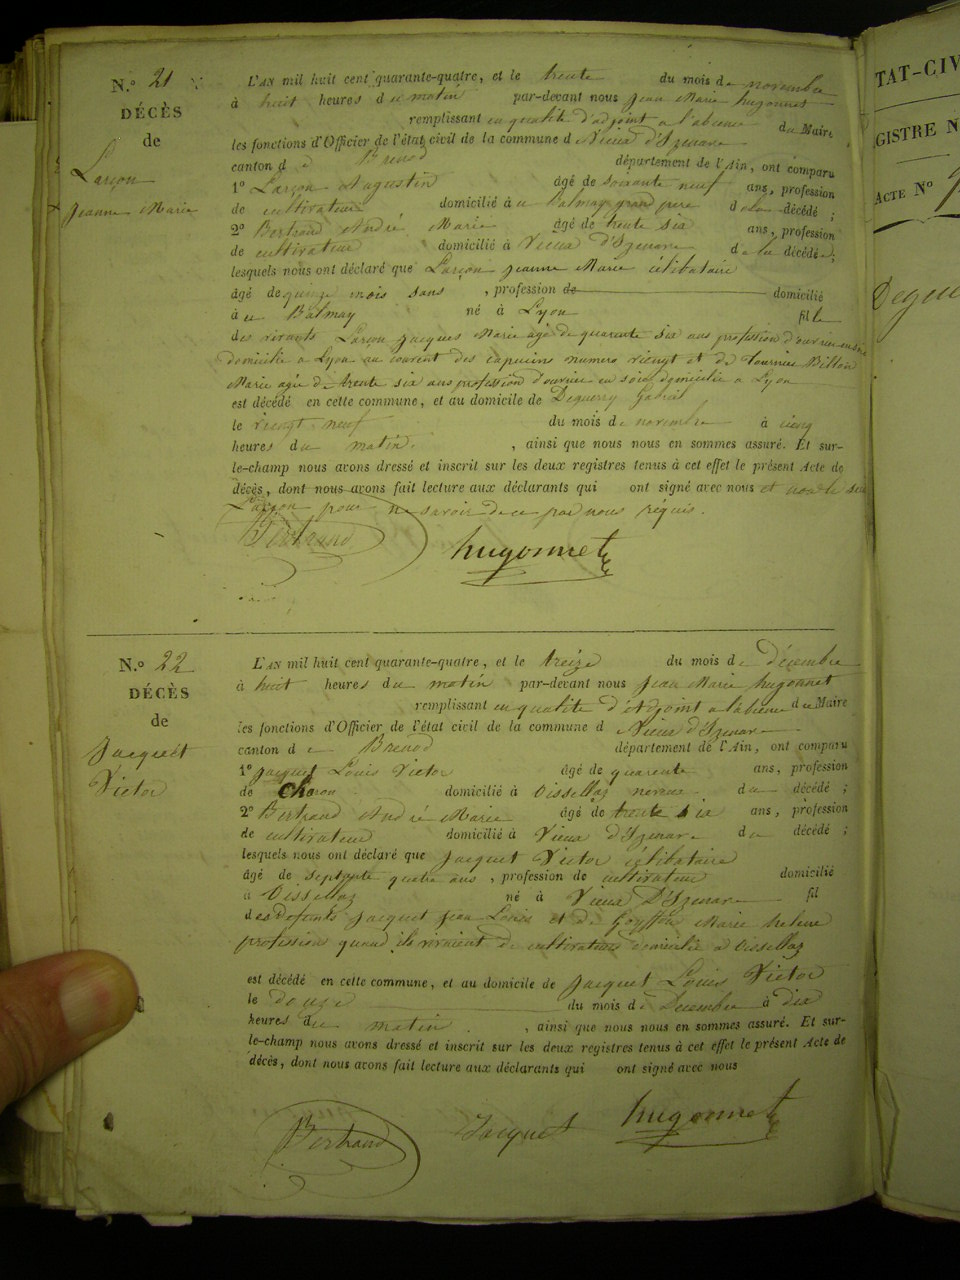 N.º 21
DÉCÈS
de
Larçon
Jeanne Marie
L'AN mil huit cent quarante-quatre, et le trente du mois de novembre
à huit heures du matin par-devant nous Jean Marie hugonnet
remplissant en qualité d'adjoint a l'absence du Maire
les fonctions d'Officier de l'état civil de la commune d Vieux d'Izenave
canton d e Brenod département de l'Ain, ont comparu
1º Larçon Augustin âgé de soixante neuf ans, profession
de cultivateur domicilié à u Balmay grand pere de la décédé ;
2º Bertrand André Marie âgé de trente six ans, profession
de cultivateur domicilié à Vieux d'Izenave de la décédée ;
lesquels nous ont déclaré que Larçon jeanne Marie célibataire
âgé de quinze mois sans , profession de domicilié
à u Balmay né à Lyon fille
des vivants Larçon jacques Marie agé de quarente six ans profession d'ouvrier en soie
domicilié a Lyon au couvent des capucins numero viengt et de Tournier Billon
Marie agée de trente six ans profession d'ouvrier en soie domicilié a Lyon
est décédé en cette commune, et au domicile de Deguerry Gabriel
le viengt neuf du mois de novembre à cienq
heures du matin. , ainsi que nous nous en sommes assuré. Et sur-
le-champ nous avons dressé et inscrit sur les deux registres tenus à cet effet le présent Acte de
décès, dont nous avons fait lecture aux déclarants qui ont signé avec nous et non le sieur
Larçon pour ne savoir de ce par nous requis.
Bertrand hugonnet
N.º 22
DÉCÈS
de
Jacquet
Victor
L'AN mil huit cent quarante-quatre, et le treize du mois de décembre
à huit heures du matin par-devant nous Jean Marie hugonnet
remplissant en qualité d'adjoint a l'absence du Maire
les fonctions d'Officier de l'état civil de la commune d Vieux d'Izenave
canton d e Brenod département de l'Ain, ont comparu
1º jacquet Louis Victor âgé de quarente ans, profession
de charon domicilié à Oissellaz neveu du décédé ;
2º Bertrand André Marie âgé de trente six ans, profession
de cultivateur domicilié à Vieux d'Izenave du décédé ;
lesquels nous ont déclaré que jacquet Victor célibataire
âgé de septante quatre ans , profession de cultivateur domicilié
à Oissellaz né à Vieux D'Izenave fil
des defunts jacquet jean Louis et de Goyffon Marie helene
profession quand ils vivaient de cultivateurs domicilié a Oissellaz
est décédé en cette commune, et au domicile de jacquet Louis Victor
le douze du mois de Decembre à dix
heures du matin . , ainsi que nous nous en sommes assuré. Et sur-
le-champ nous avons dressé et inscrit sur les deux registres tenus à cet effet le présent Acte de
décès, dont nous avons fait lecture aux déclarants qui ont signé avec nous
Bertrand Jacquet hugonnet
TAT-CIV
GISTRE N
ACTE Nº